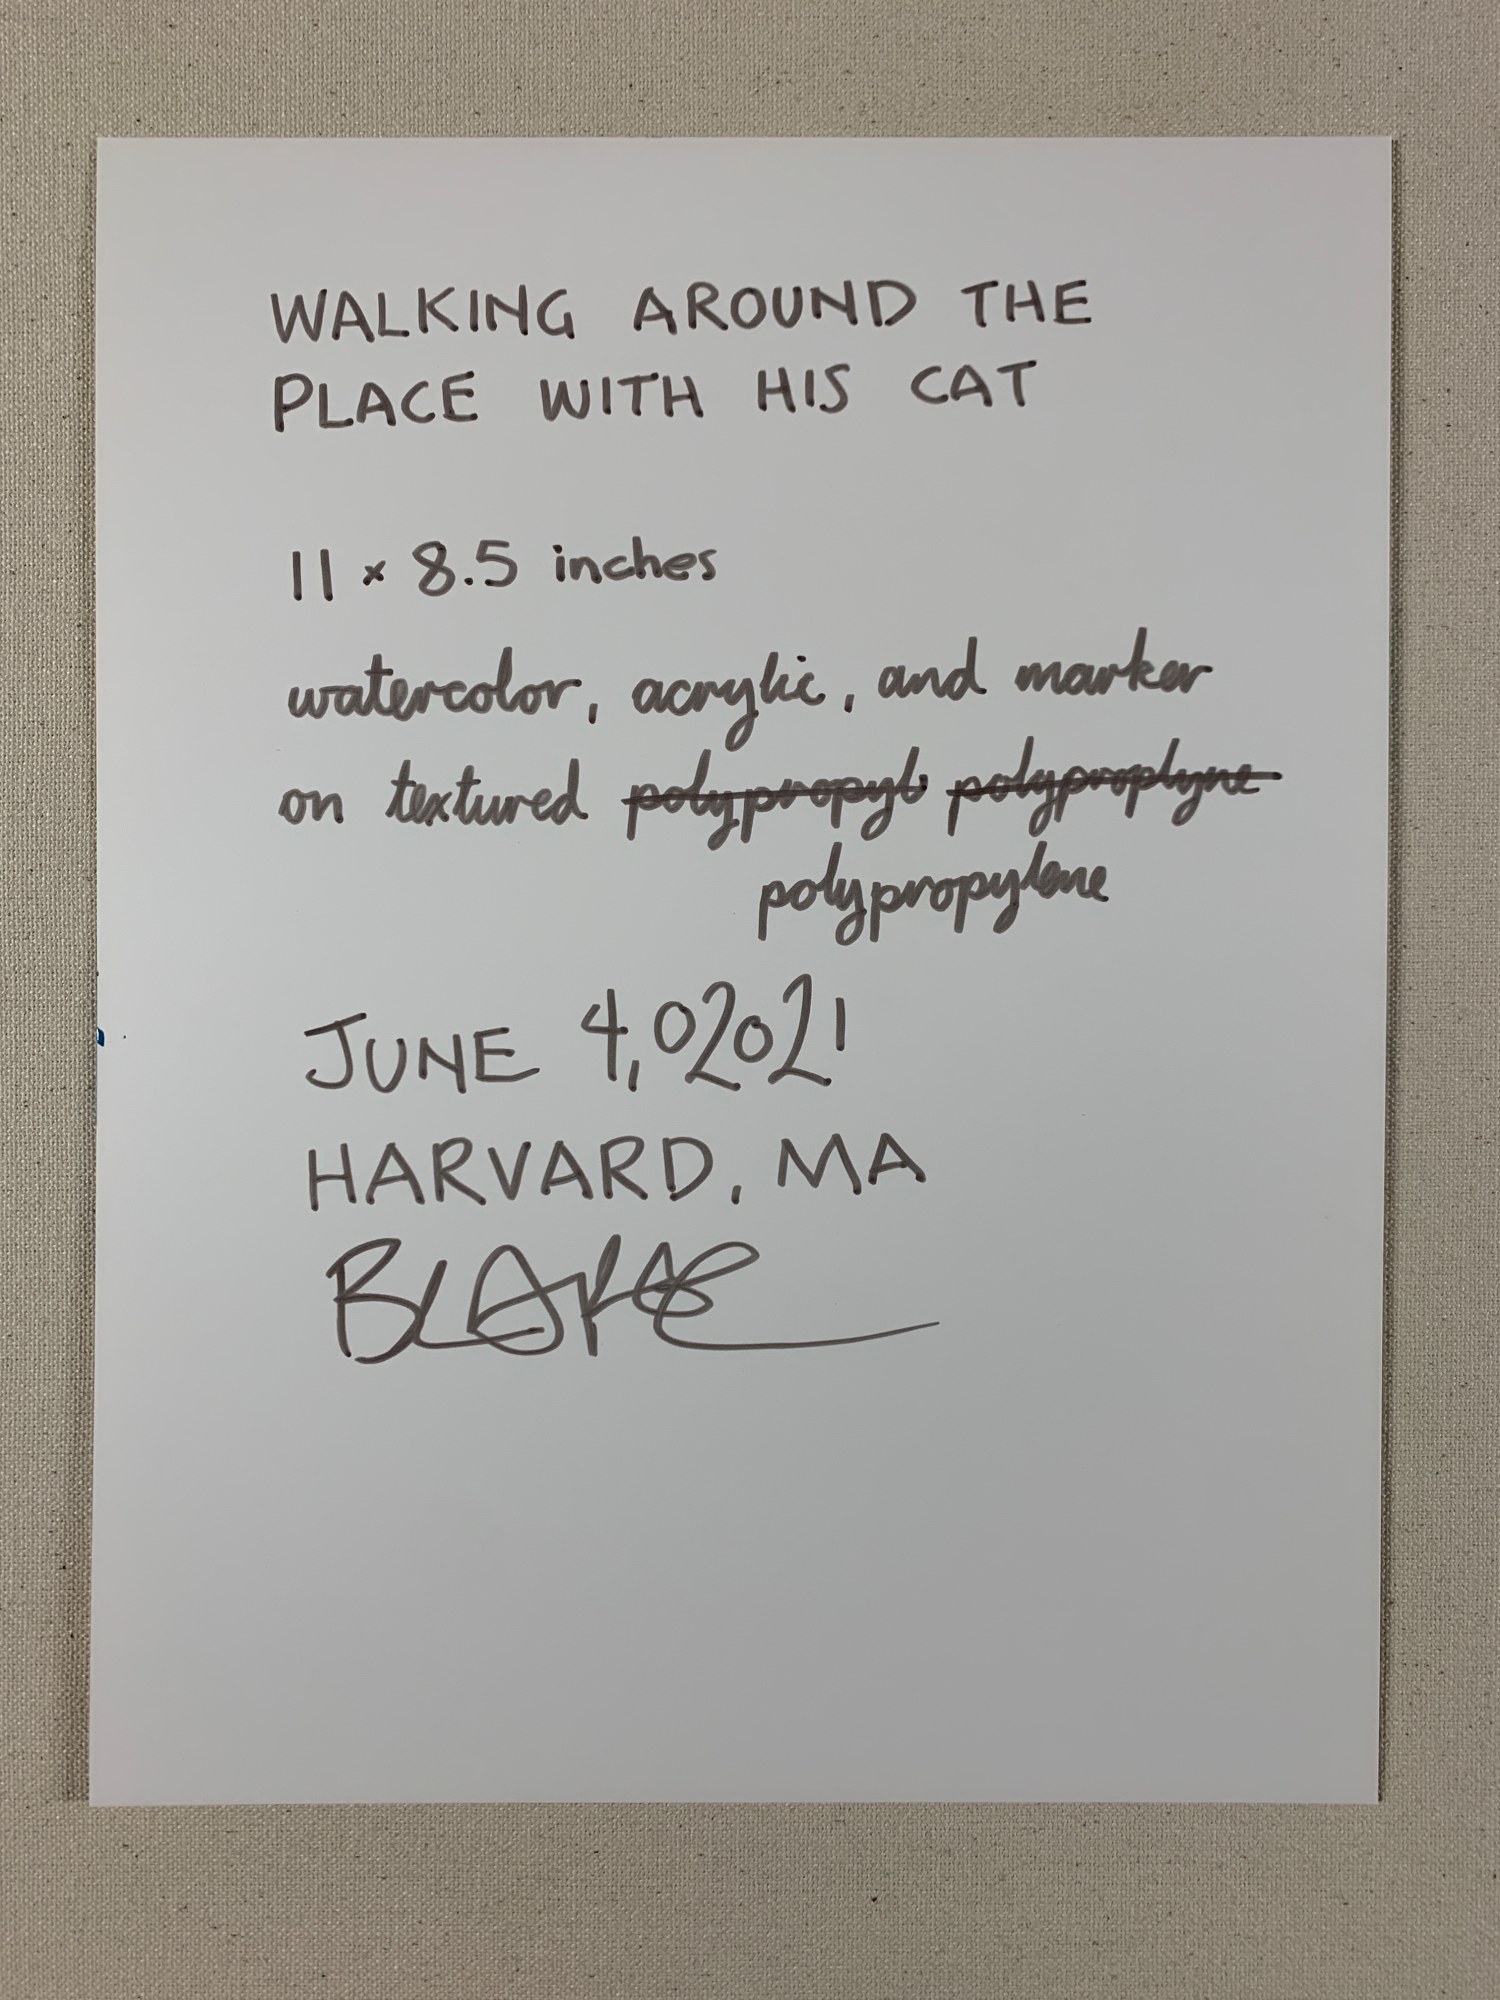 WALKING AROUND THE
PLACE WITH HIS CAT
11 × 8.5 inches
watercolor, acrylic, and marker
on textured polypropyl polyproplyne
polypropylene
JUNE 4, 02021
HARVARD, MA
BLAKE